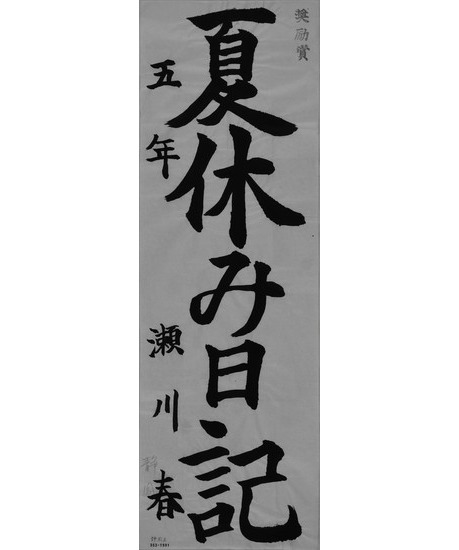 奨励賞
夏休み日記
五年 瀬川春